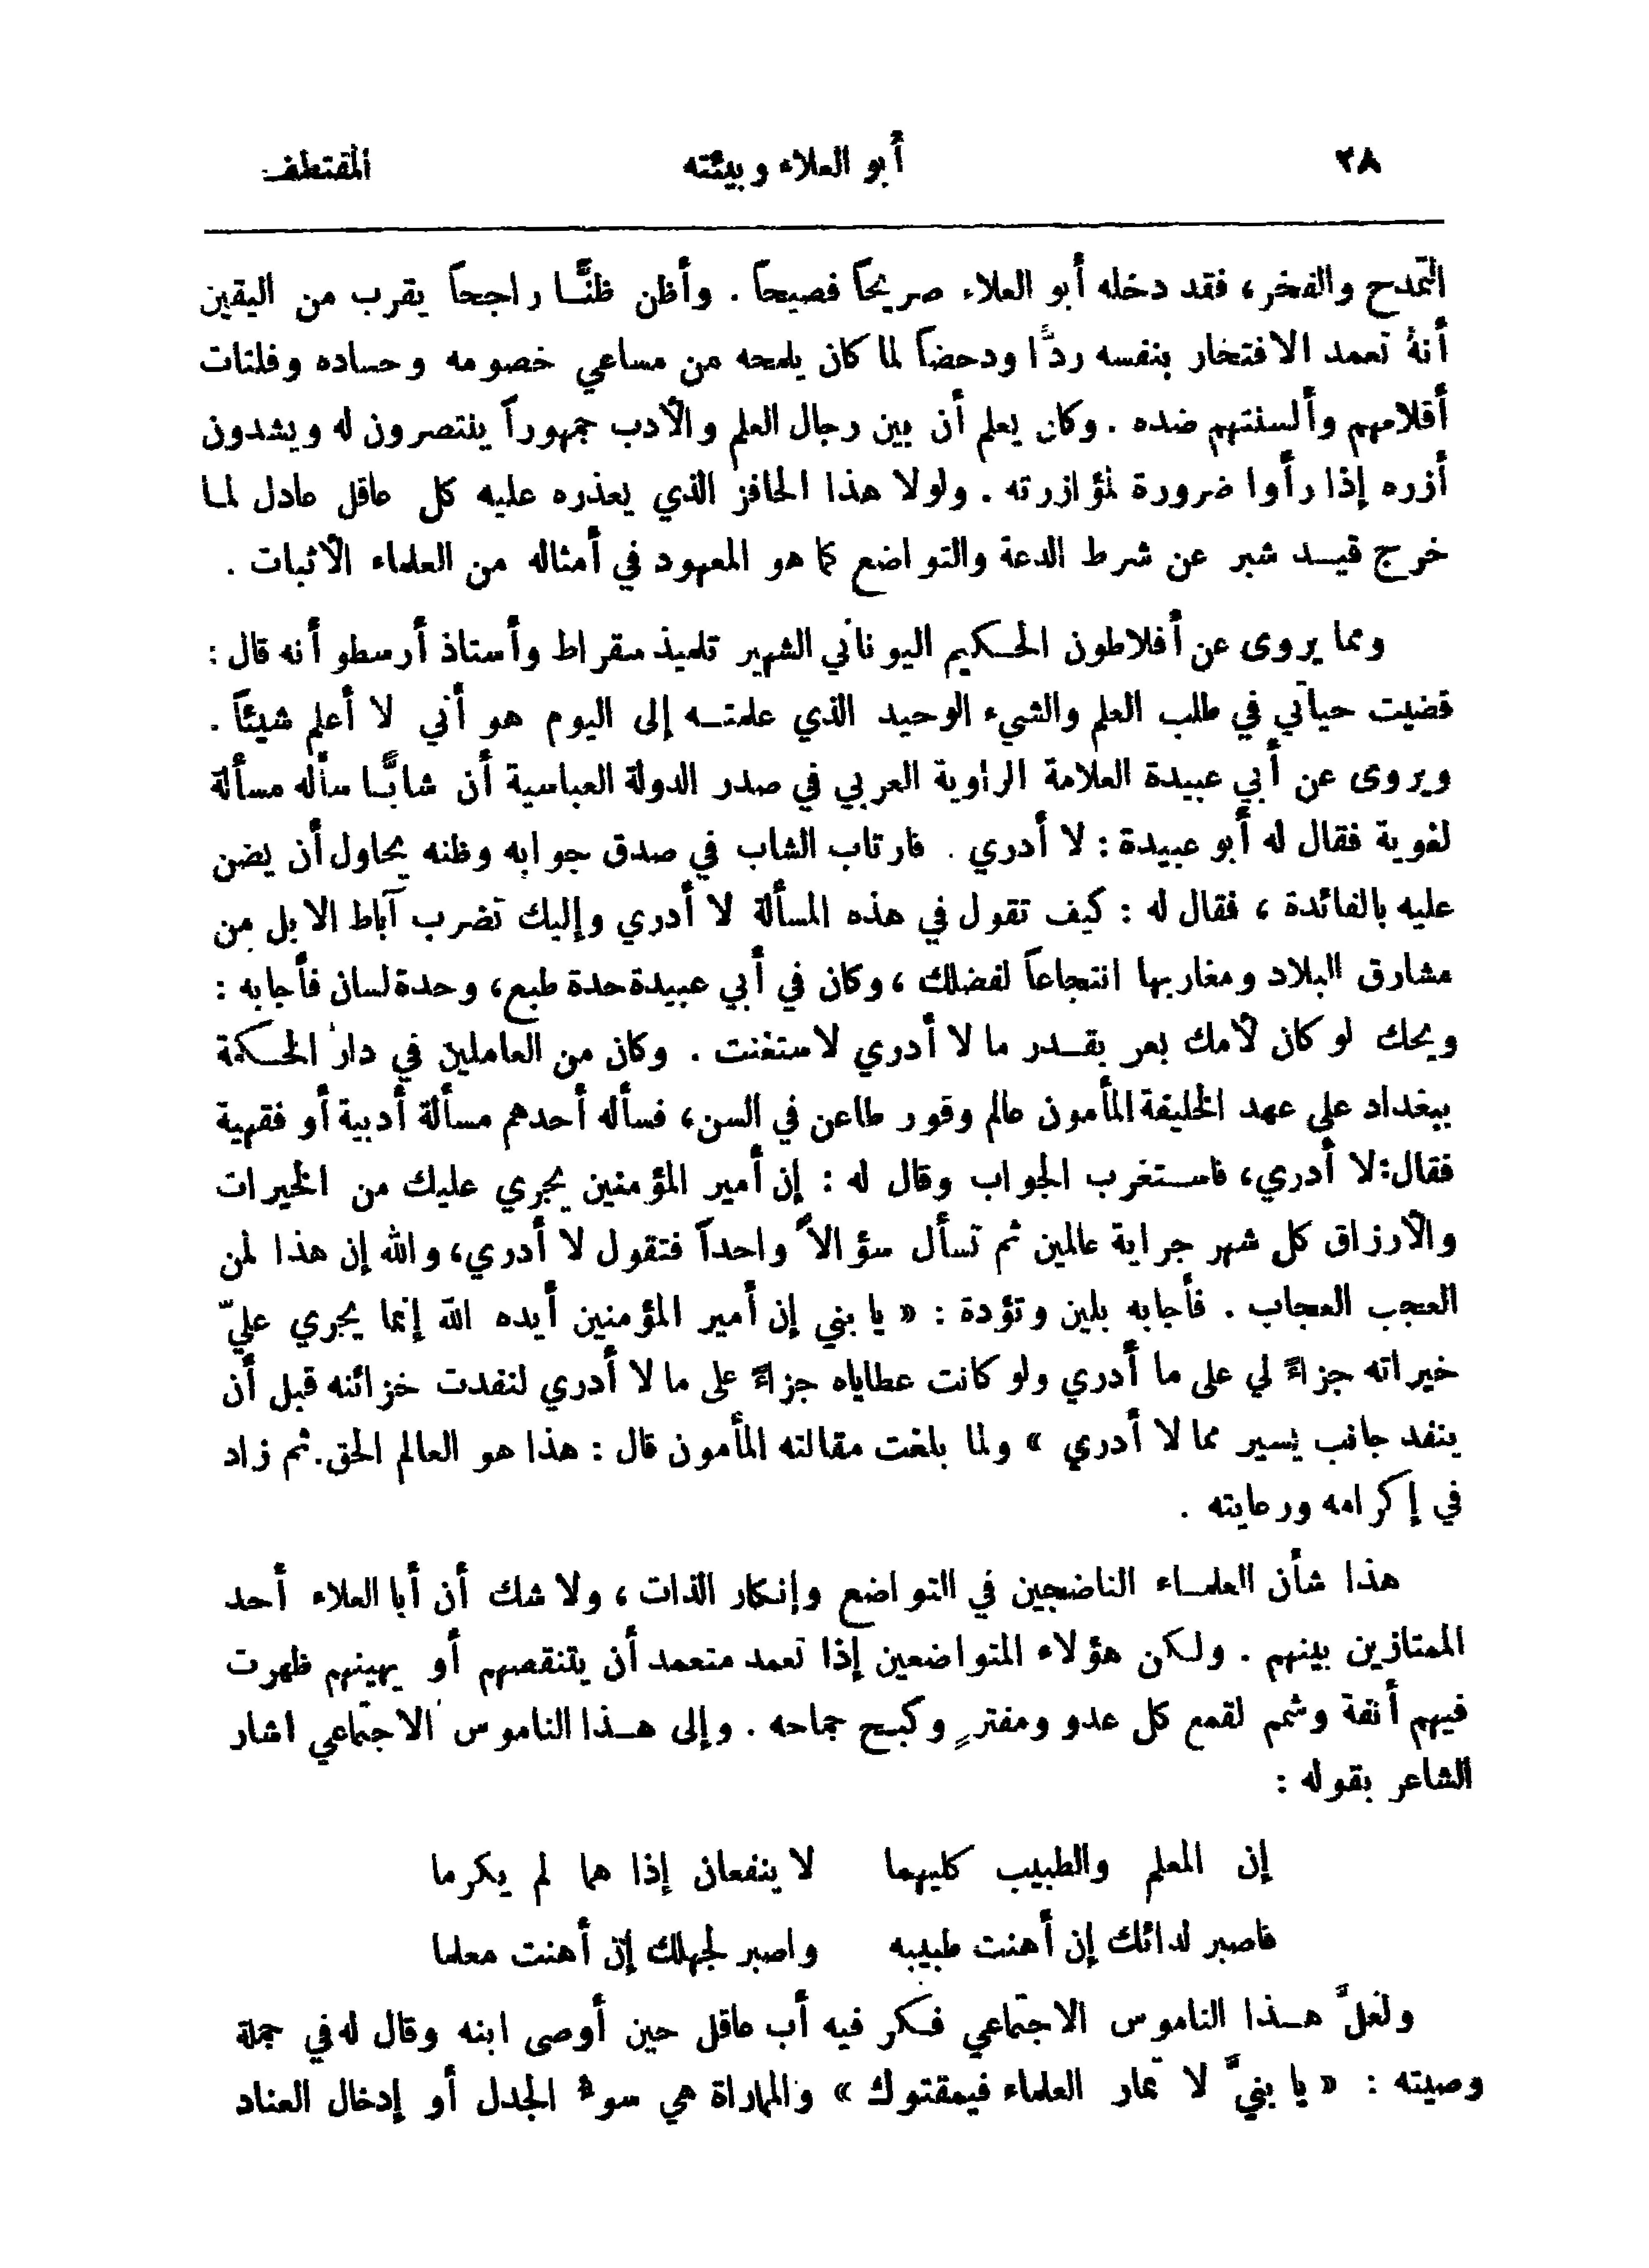 ٢٨ أبو العلاء وبيئته المقتطف
التمدح والفخر، فقد دخله أبو العلاء صريحاً فصيحاً . وأظن ظنًّا راجحاً يقرب من اليقين
أنهُ تعمد الافتخار بنفسه ردًّا ودحضاً لما كان يلمحه من مساعي خصومه وحساده وفلتات
أقلامهم وألسنتهم ضده . وكان يعلم أن بين رجال العلم والأدب جمهوراً ينتصرون له ويشدون
أزره إذا رأوا ضرورة لمؤازرته . ولولا هذا الحافز الذي يعذره عليه كل عاقل عادل لما
خرج قيد شبر عن شرط الدعة والتواضع كما هو المعهود في أمثاله من العلماء الأثبات .
ومما يروى عن أفلاطون الحكيم اليوناني الشهير تلميذ سقراط وأستاذ أرسطو أنه قال :
قضيت حياتي في طلب العلم والشيء الوحيد الذي علمته إلى اليوم هو أني لا أعلم شيئاً .
ويروى عن أبي عبيدة العلامة الراوية العربي في صدر الدولة العباسية أن شابًّا سأله مسألة
لغوية فقال له أبو عبيدة : لا أدري . فارتاب الشاب في صدق جوابه وظنه يحاول أن يضن
عليه بالفائدة ، فقال له : كيف تقول في هذه المسألة لا أدري وإليك تضرب آباط الابل من
مشارق البلاد ومغاربها انتجاعاً لفضلك ، وكان في أبي عبيدة حدة طبع، وحدة لسان فأجابه :
ويحك لو كان لأمك بعر بقدر ما لا أدري لاستغنت . وكان من العاملين في دار الحكمة
ببغداد على عهد الخليفة المأمون عالم وقور طاعن في السن، فسأله أحدهم مسألة أدبية أو فقهية
فقال: لا أدري، فاستغرب الجواب وقال له : إن أمير المؤمنين يجري عليك من الخيرات
والأرزاق كل شهر جراية عالمين ثم تسأل سؤالاً واحداً فتقول لا أدري، والله إن هذا لمن
العجب العجاب . فأجابه بلين وتؤدة : « يا بني إن أمير المؤمنين أيده الله إنما يجري عليّ
خيراته جزاءً لي على ما أدري ولو كانت عطاياه جزاءً على ما لا أدري لنفدت خزائنه قبل أن
ينفد جانب يسير مما لا أدري » ولما بلغت مقالته المأمون قال : هذا هو العالم الحق. ثم زاد
في إكرامه ورعايته .
هذا شأن العلماء الناضجين في التواضع وإنكار الذات ، ولا شك أن أبا العلاء أحد
الممتازين بينهم . ولكن هؤلاء المتواضعين إذا تعمد متعمد أن يتنقصهم أو يهينهم ظهرت
فيهم أنفة وشمم لقمع كل عدو ومفترٍ وكبح جماحه . وإلى هذا الناموس الاجتماعي اشار
الشاعر بقوله :
إن المعلم والطبيب كليهما لا ينفعان إذا هما لم يكرما
فاصبر لدائك إن أهنت طبيبه واصبر لجهلك إن أهنت معلما
ولعلَّ هذا الناموس الاجتماعي فكر فيه أب عاقل حين أوصى ابنه وقال له في جملة
وصيته : « يا بنيَّ لا تمار العلماء فيمقتوك » والمماراة هي سوء الجدل أو إدخال العناد